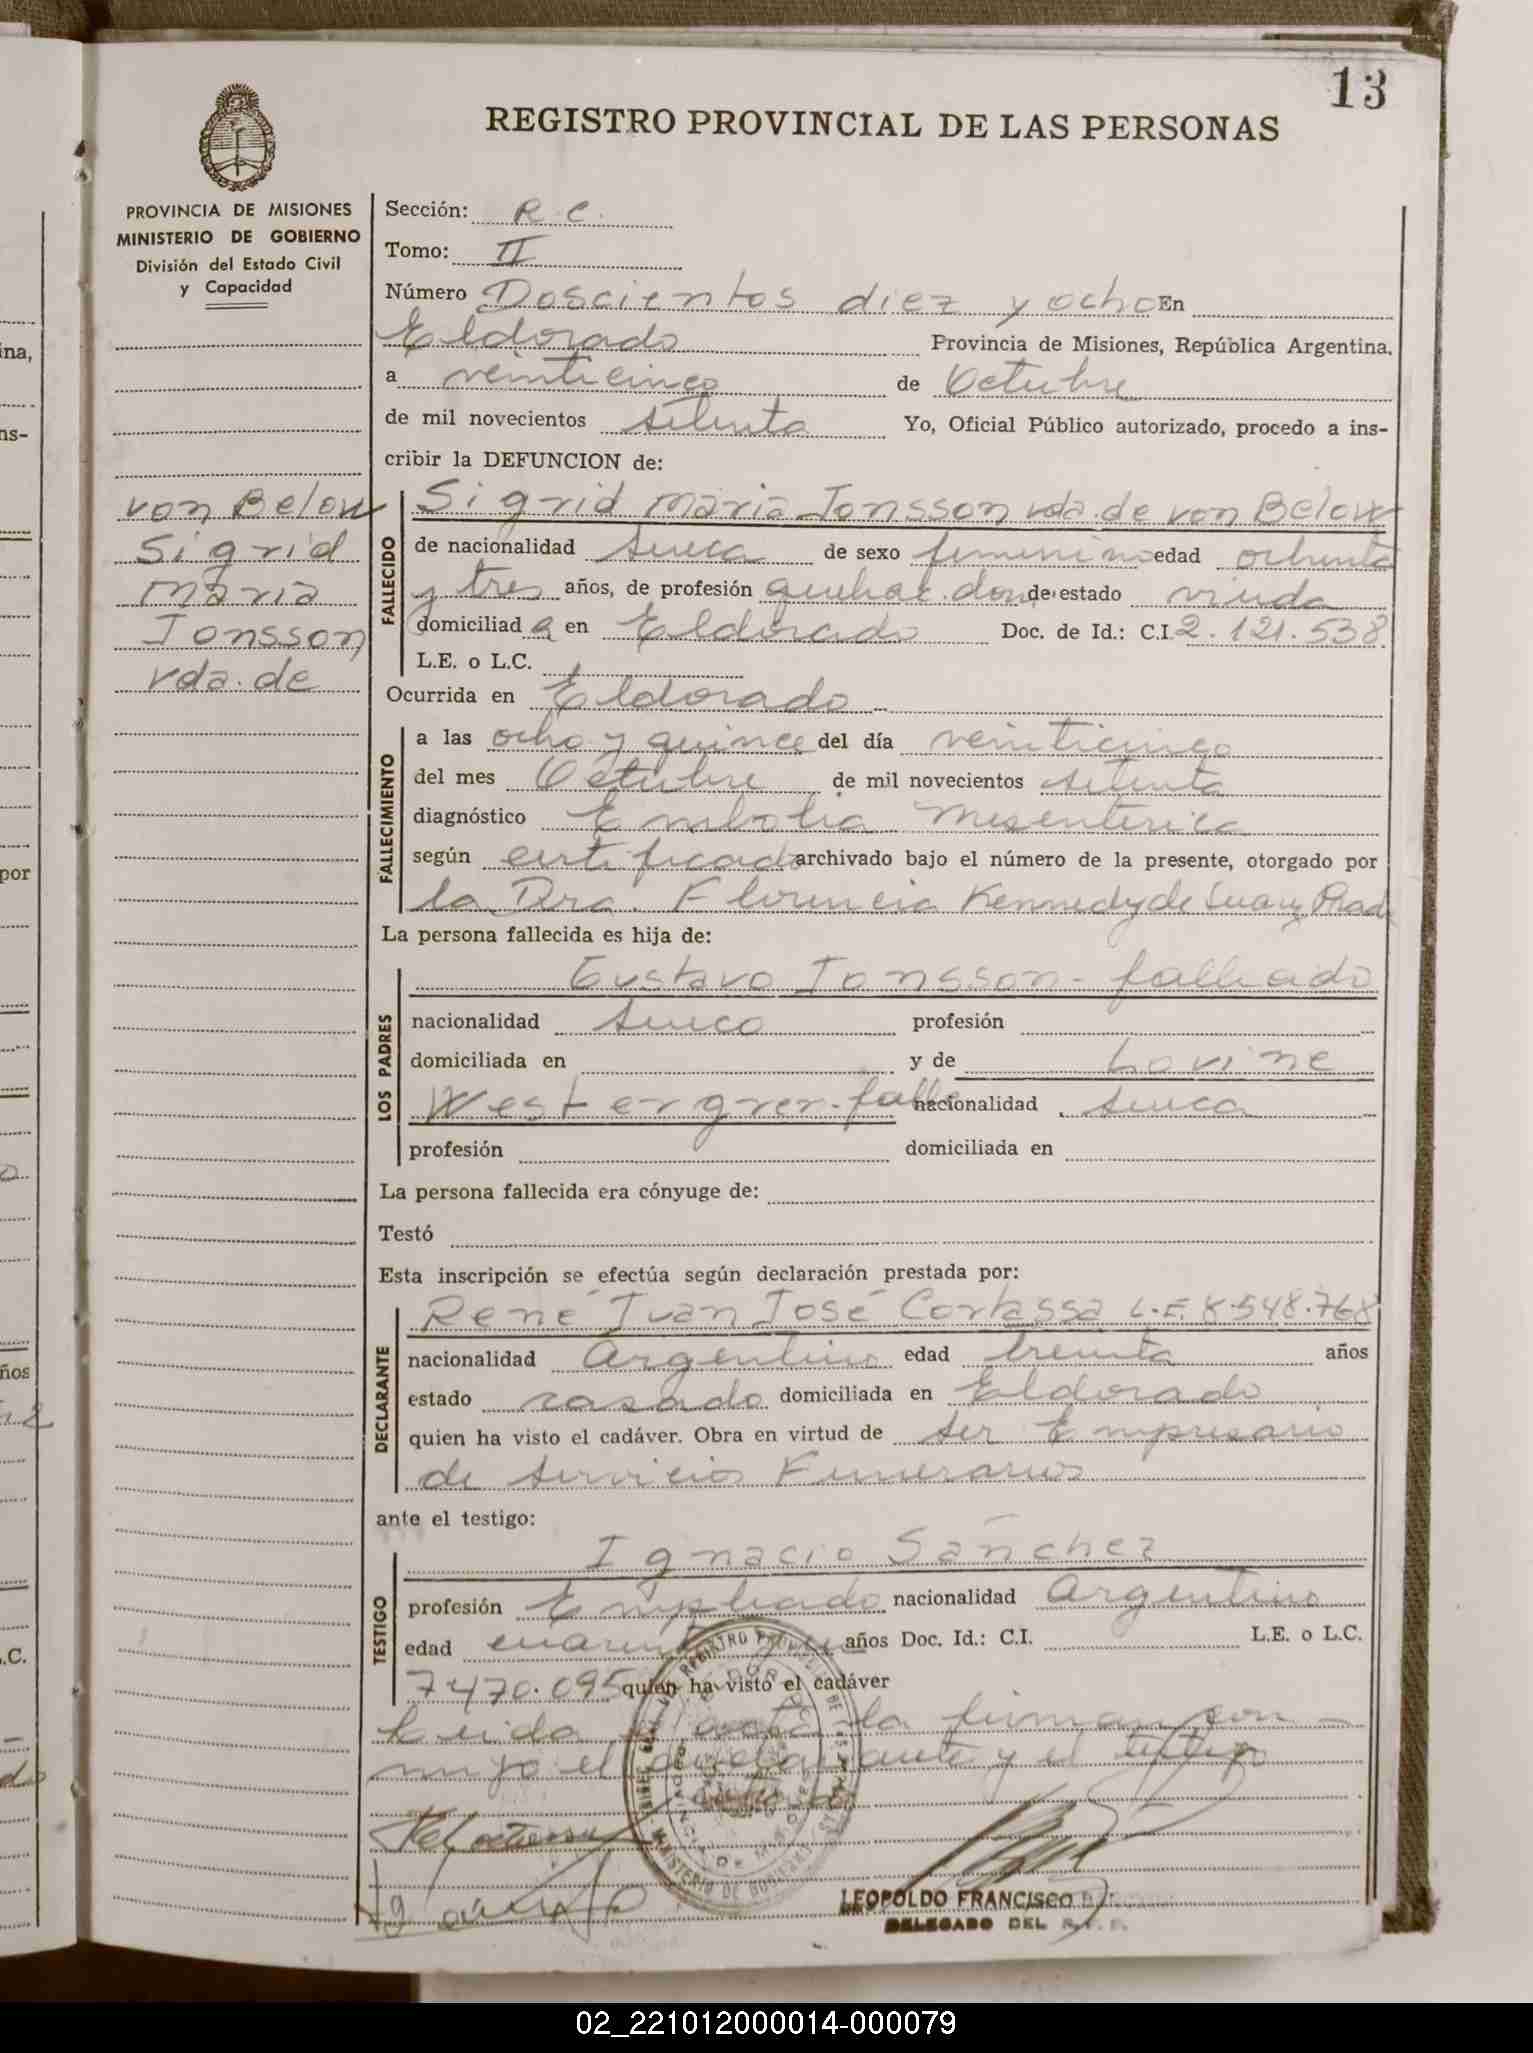 13
REGISTRO PROVINCIAL DE LAS PERSONAS
PROVINCIA DE MISIONES
MINISTERIO DE GOBIERNO
División del Estado Civil
y Capacidad
von Below
Sigrid
Maria
Jonsson
vda. de
Sección: R. C.
Tomo: II
Número Doscientos diez y ocho En
Eldorado Provincia de Misiones, República Argentina,
a veinticinco de Octubre
de mil novecientos setenta Yo, Oficial Público autorizado, procedo a ins-
cribir la DEFUNCION de:
FALLECIDO
Sigrid Maria Jonsson vda. de von Below
de nacionalidad sueca de sexo femenino edad ochenta
y tres años, de profesión quehac. dom. de estado viuda
domiciliad a en Eldorado Doc. de Id.: C.I. 2.121.538
L.E. o L.C.
Ocurrida en Eldorado
FALLECIMIENTO
a las ocho y quince del día veinticinco
del mes Octubre de mil novecientos setenta
diagnóstico Embolia Mesenterica
según certificado archivado bajo el número de la presente, otorgado por
la Dra. Florencia Kennedy de Suarez
La persona fallecida es hija de:
LOS PADRES
Gustavo Jonsson - fallecido
nacionalidad sueco profesión
domiciliada en y de Lovine
Westergrer - falle nacionalidad sueca
profesión domiciliada en
La persona fallecida era cónyuge de:
Testó
Esta inscripción se efectúa según declaración prestada por:
DECLARANTE
René Juan José Cortassa L.E. 8.548.768
nacionalidad Argentino edad treinta años
estado casado domiciliada en Eldorado
quien ha visto el cadáver. Obra en virtud de ser Empresario
de Servicios Funerarios
ante el testigo:
TESTIGO
Ignacio Sánchez
profesión Empleado nacionalidad Argentino
edad cuarenta y años Doc. Id.: C.I. L.E. o L.C.
7470.095 quien ha visto el cadáver
Leida el acta la firman con-
migo el declarante y el testigo
LEOPOLDO FRANCISCO
DELEGADO DEL
02_221012000014-000079